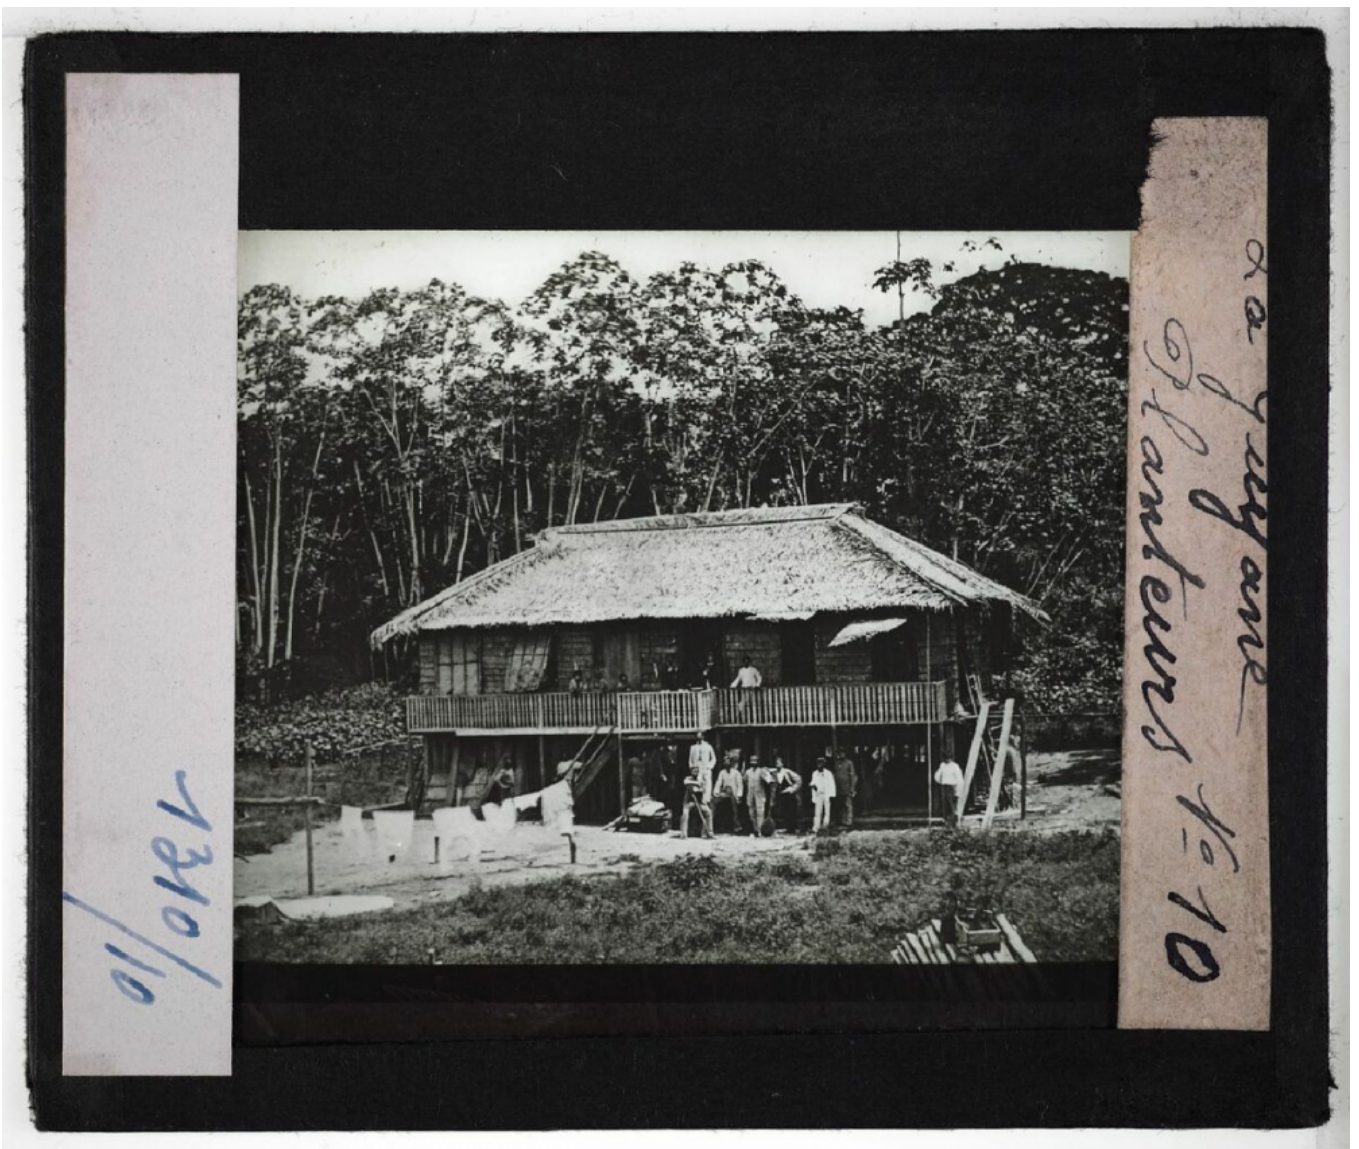 1310/10
La guyane
Planteurs No 10